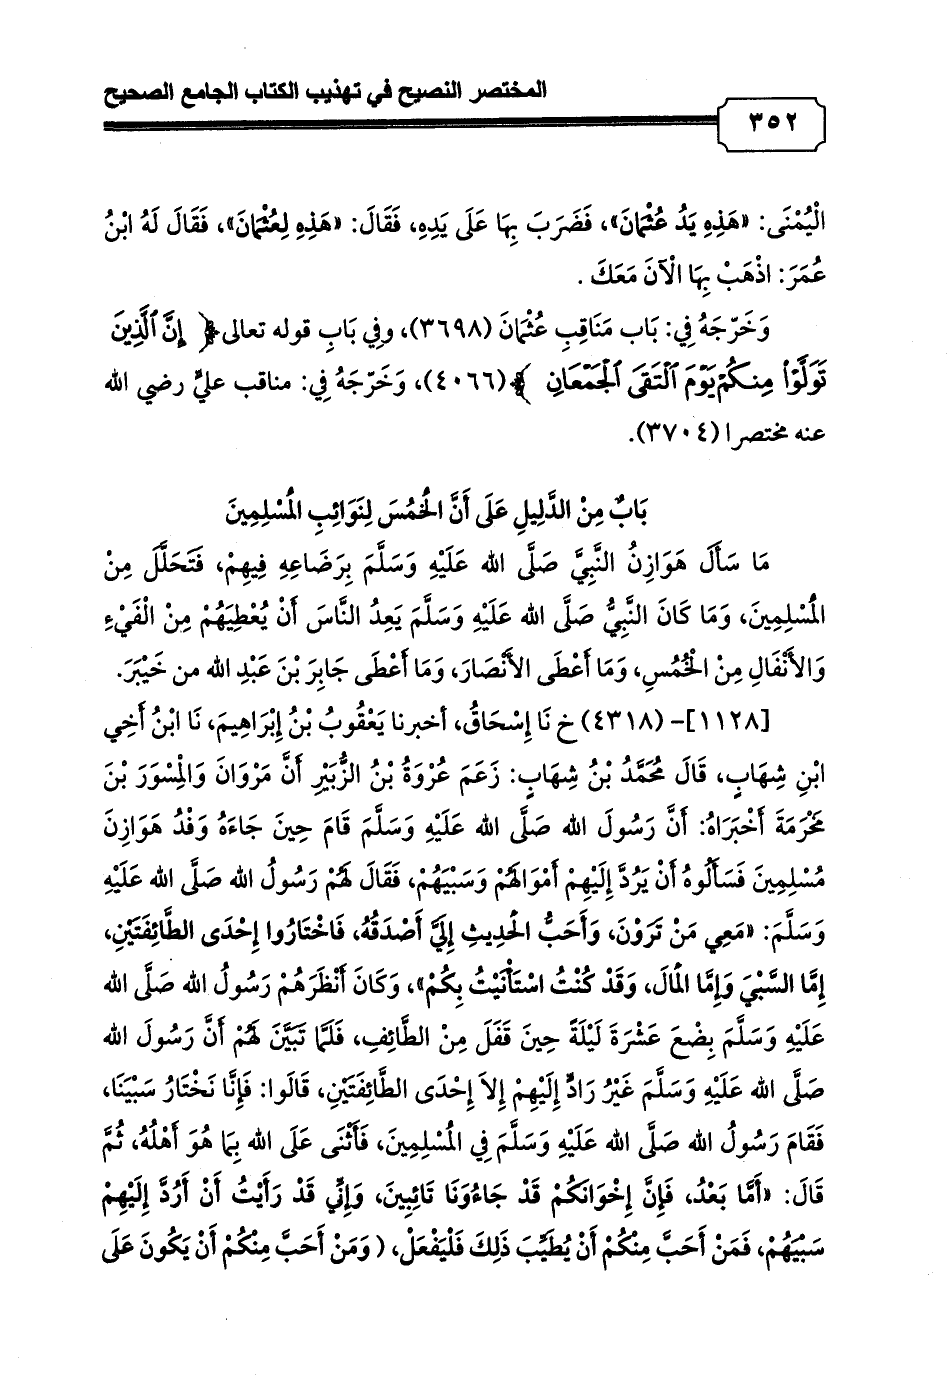 المختصر النصيح في تهذيب الكتاب الجامع الصحيح
٣٥٢
الْيُمْنَى: «هَذِهِ يَدُ عُثْمَانَ»، فَضَرَبَ بِهَا عَلَى يَدِهِ، فَقَالَ: «هَذِهِ لِعُثْمَانَ»، فَقَالَ لَهُ ابْنُ
عُمَرَ: اذْهَبْ بِهَا الْآنَ مَعَكَ .
وَخَرّجَهُ فِي: بَاب مَنَاقِبِ عُثْمَانَ (٣٦٩٨)، وفِي بَابِ قوله تعالى ﴿ إِنَّ ٱلَّذِينَ
تَوَلَّوْا۟ مِنكُمْ يَوْمَ ٱلْتَقَى ٱلْجَمْعَانِ ﴾ (٤٠٦٦)، وَخَرّجَهُ فِي: مناقب عليٍّ رضي الله
عنه مختصرا (٣٧٠٤).
بَابٌ مِنْ الدَّلِيلِ عَلَى أَنَّ الْخُمُسَ لِنَوَائِبِ الْمُسْلِمِينَ
مَا سَأَلَ هَوَازِنُ النَّبِيَّ صَلَّى الله عَلَيْهِ وَسَلَّمَ بِرَضَاعِهِ فِيهِمْ، فَتَحَلَّلَ مِنْ
الْمُسْلِمِينَ، وَمَا كَانَ النَّبِيُّ صَلَّى الله عَلَيْهِ وَسَلَّمَ يَعِدُ النَّاسَ أَنْ يُعْطِيَهُمْ مِنْ الْفَيْءِ
وَالأَنْفَالِ مِنْ الْخُمُسِ، وَمَا أَعْطَى الأَنْصَارَ، وَمَا أَعْطَى جَابِرَ بْنَ عَبْدِ الله من خَيْبَرَ.
[١١٢٨]- (٤٣١٨) خ نَا إِسْحَاقُ، أخبرنا يَعْقُوبُ بْنُ إِبْرَاهِيمَ، نَا ابْنُ أَخِي
ابْنِ شِهَابٍ، قَالَ مُحَمَّدُ بْنُ شِهَابٍ: زَعَمَ عُرْوَةُ بْنُ الزُّبَيْرِ أَنَّ مَرْوَانَ وَالْمِسْوَرَ بْنَ
مَخْرَمَةَ أَخْبَرَاهُ: أَنَّ رَسُولَ الله صَلَّى الله عَلَيْهِ وَسَلَّمَ قَامَ حِينَ جَاءَهُ وَفْدُ هَوَازِنَ
مُسْلِمِينَ فَسَأَلُوهُ أَنْ يَرُدَّ إِلَيْهِمْ أَمْوَالَهُمْ وَسَبْيَهُمْ، فَقَالَ لَهُمْ رَسُولُ الله صَلَّى الله عَلَيْهِ
وَسَلَّمَ: «مَعِي مَنْ تَرَوْنَ، وَأَحَبُّ الْحَدِيثِ إِلَيَّ أَصْدَقُهُ، فَاخْتَارُوا إِحْدَى الطَّائِفَتَيْنِ،
إِمَّا السَّبْيَ وَإِمَّا الْمَالَ، وَقَدْ كُنْتُ اسْتَأْنَيْتُ بِكُمْ»، وَكَانَ أَنْظَرَهُمْ رَسُولُ الله صَلَّى الله
عَلَيْهِ وَسَلَّمَ بِضْعَ عَشْرَةَ لَيْلَةً حِينَ قَفَلَ مِنْ الطَّائِفِ، فَلَمَّا تَبَيَّنَ لَهُمْ أَنَّ رَسُولَ الله
صَلَّى الله عَلَيْهِ وَسَلَّمَ غَيْرُ رَادٍّ إِلَيْهِمْ إِلاَ إِحْدَى الطَّائِفَتَيْنِ، قَالُوا: فَإِنَّا نَخْتَارُ سَبْيَنَا،
فَقَامَ رَسُولُ الله صَلَّى الله عَلَيْهِ وَسَلَّمَ فِي الْمُسْلِمِينَ، فَأَثْنَى عَلَى الله بِمَا هُوَ أَهْلُهُ، ثُمَّ
قَالَ: «أَمَّا بَعْدُ، فَإِنَّ إِخْوَانَكُمْ قَدْ جَاءُونَا تَائِبِينَ، وَإِنِّي قَدْ رَأَيْتُ أَنْ أَرُدَّ إِلَيْهِمْ
سَبْيَهُمْ، فَمَنْ أَحَبَّ مِنْكُمْ أَنْ يُطَيِّبَ ذَلِكَ فَلْيَفْعَلْ، ( وَمَنْ أَحَبَّ مِنْكُمْ أَنْ يَكُونَ عَلَى